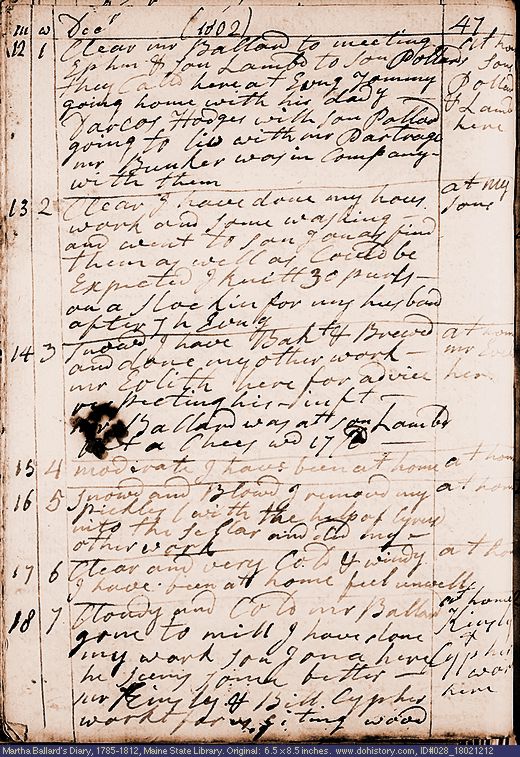 m w Decr (1802) 47
12 1 Clear mr Ballard to meeting at home
Ephm & son Lambd to son Pollards Sons
they Calld here at Evng Tommy Pollard
going home with his dady & Lamb
Darcos Hodges with son Pollard here
going to liv with mr Partrage
mr Bunker was in Company
with them
13 2 Clear I have done my hous at my
work and some washing sons
and went to son Jonas find
them as well as Could be
Expected I knitt 30 purls
on a stockin for my husband
after I h Evng
14 3 Snowd I have Bakt & Brewd at home
and done my other work mr
mr Edlith here for advice here
respecting his inft
mr Ballard was at son Lambds
a Chees wd 17
15 4 moderate I have been at home at home
16 5 Snowd and Blowd I removd my at home
pickles with the help of Cyrus
into the Sellar and did my
other work
17 6 Clear and very Cold & windy at home
I have been at home feel unwell
18 7 Cloudy and Cold mr Ballard at home
gone to mill I have done Kinsly
my work son Jona here &
he seems some better Cypher
mr Kinsly & Bill Cypher work
workt for us giting wood here
Martha Ballard's Diary, 1785-1812, Maine State Library. Original: 6.5 x 8.5 inches. www.dohistory.com, ID#028_18021212